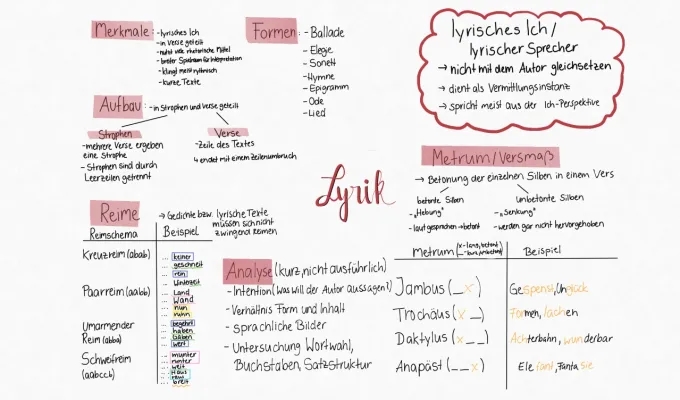 Merkmale:
-lyrisches Ich
-in Verse geteilt
-nutzt viele rhetorische Mittel
-breiter Spielraum für Interpretation
-klingt meist rythmisch
-kurze Texte
Formen:
-Ballade
-Elegie
-Sonett
-Hymne
-Epigramm
-Ode
-Lied
lyrisches Ich /
lyrischer Sprecher
→ nicht mit dem Autor gleichsetzen
→ dient als Vermittlungsinstanz
→ spricht meist aus der Ich-Perspektive
Aufbau:
-in Strophen und Verse geteilt
Strophen
-mehrere Verse ergeben
eine Strophe
-Strophen sind durch
Leerzeilen getrennt
Verse
-Zeile des Textes
↳ endet mit einem Zeilenumbruch
Lyrik
Metrum/Versmaß
→ Betonung der einzelnen Silben in einem Vers
betonte Silben
-„Hebung“
-laut gesprochen → betont
unbetonte Silben
-„Senkung“
-werden gar nicht hervorgehoben
Reime
→ Gedichte bzw. lyrische Texte
müssen sich nicht
zwingend reimen
Reimschema
Beispiel
Kreuzreim (abab)
... keiner
... geschneit
... rein
Paarreim (aabb)
... Land
... Wand
... nun
... ruhn
Umarmender
Reim (abba)
... begehrt
... haben
... laben
... wert
Schweifreim
(aabccb)
... munter
... runter
... weit
... Haus
... raus
... breit
Analyse (kurz, nicht ausführlich)
-Intention (Was will der Autor aussagen?)
-Verhältnis Form und Inhalt
-sprachliche Bilder
-Untersuchung Wortwahl,
Buchstaben, Satzstruktur
Metrum
Beispiel
Jambus (_x)
Gespenst, Unglück
Trochäus (x_)
Formen, lachen
Daktylus (x__)
Achterbahn, wunderbar
Anapäst (__x)
Elefant, Fantasie